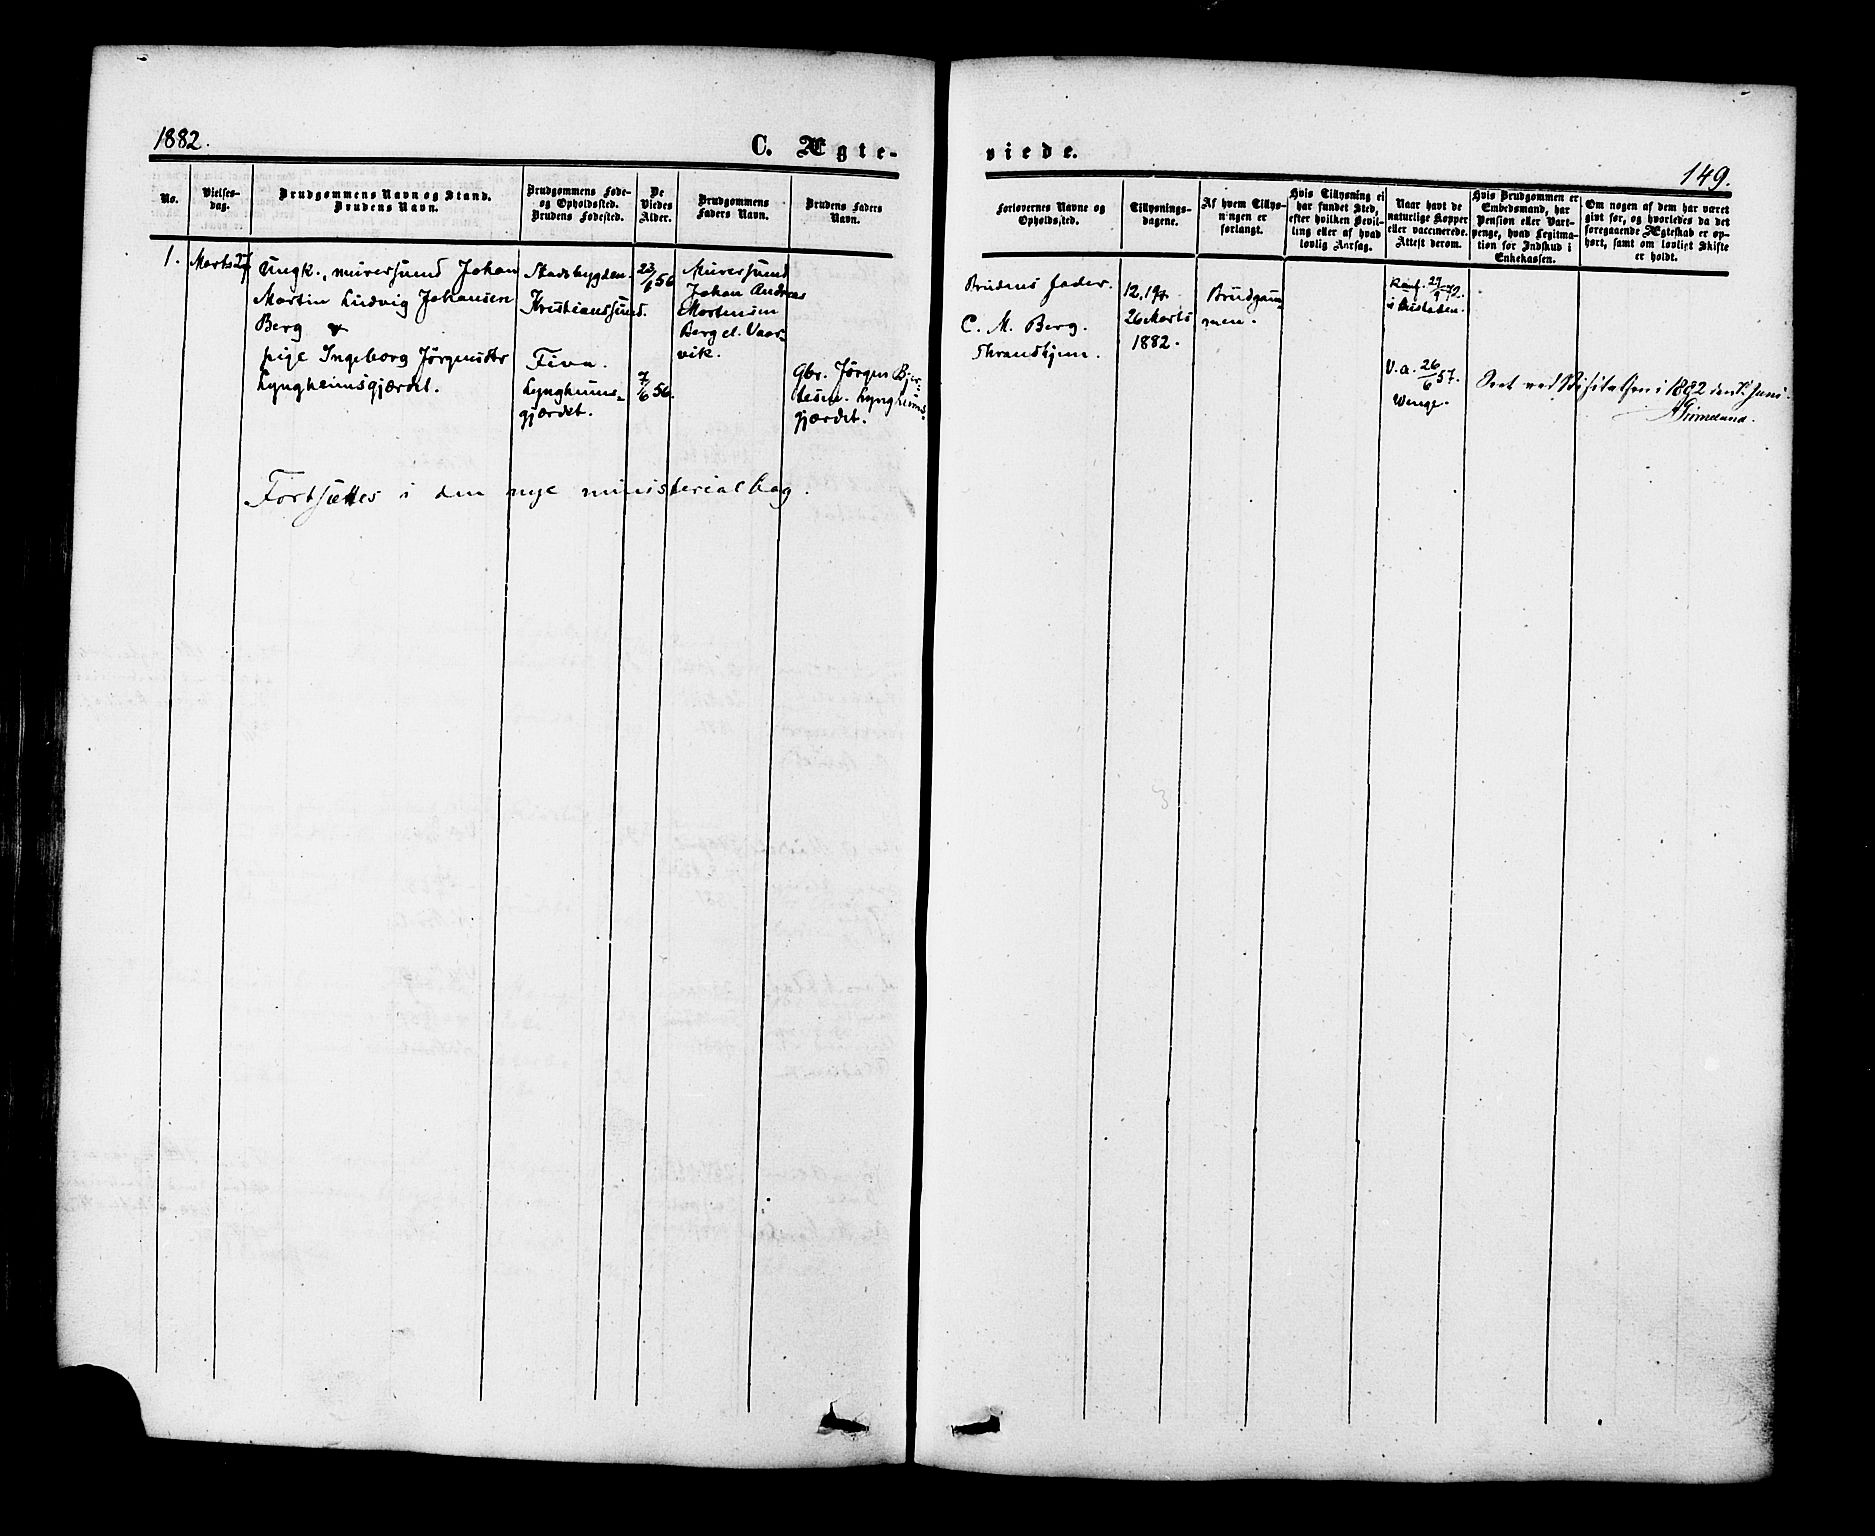 1882.
C. Ægte-
viede.
149.
No.
Vielses-
dag.
Brudgommens Navn og Stand.
Brudens Navn.
Brudgommens Føde-
og Opholdssted.
Brudens Fødested.
De
Viedes
Alder.
Brudgommens
Faders Navn.
Brudens Faders
Navn.
Forlovernes Navne og
Opholdssted.
Tillysnings-
dagene.
Af hvem Tillys-
ningen er
forlangt.
Hvis Tillysning ei
har fundet Sted,
efter hvilken Bevil-
ling eller af hvad
lovlig Aarsag.
Naar havt de
naturlige Kopper
eller vaccinerede.
Attest derom.
Hvis Brudgommen er
Embedsmand, har
Pension eller Vart-
penge, hvad Legitima-
tion for Indskud i
Enkekassen.
Om nogen af dem har været
givt før, og hvorledes da det
foregaaende Ægteskab er op-
hørt, samt om lovligt Skifte
er holdt.
1.
Marts 27
Ungk., murersvend Johan
Martin Ludvig Johansen
Berg &
pige Ingeborg Jørgensdtr
Lyngheimsgjærdet.
Stadsbygden.
Kristianssund.
Fiva.
Lyngheims-
gjærdet.
23/6 56
7/6 56.
Murersvend
Johan Andreas
Mortensen
Berg el. Vaar-
vik.
Gbr. Jørgen
Lyngheims-
gjærdet.
Brudens fader.
C. M. Berg.
Thrandhjem.
12, 19 &
26 Marts
1882.
Brudgom-
men.
Konf. 29/9 72.
i
V. a. 26/6 57.
Wenge.
Seet ved Visitatsen i 1882 den Juni
Fortsættes i den nye ministerialbog.